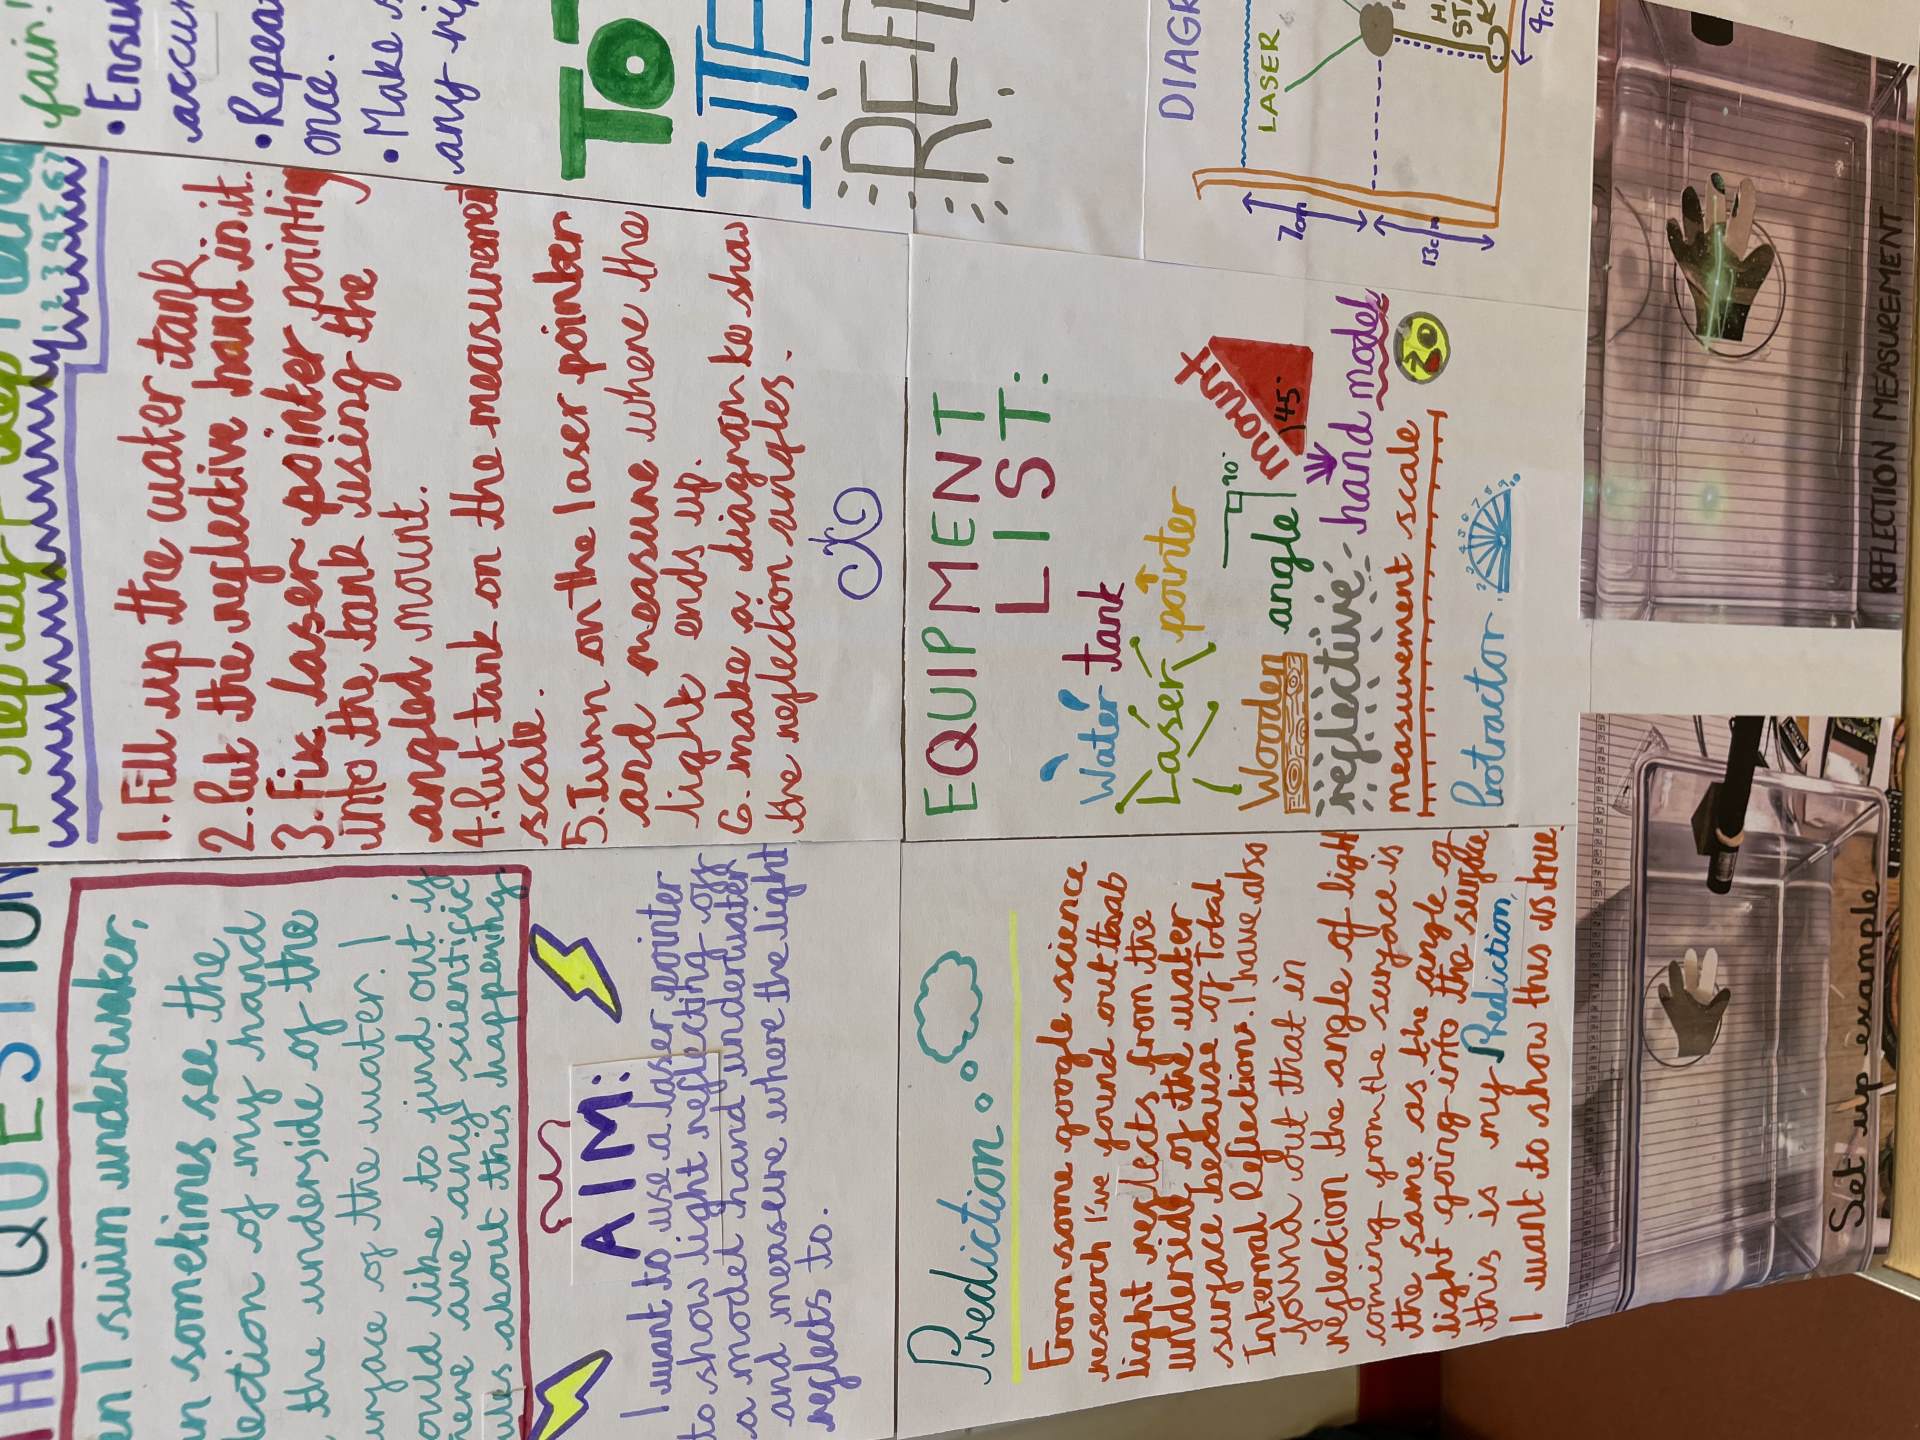 THE QUESTION
en I swim underwater,
an sometimes see the
lection of my hand
the underside of the
urface of the water. I
ould like to find out if
here are any scientific
ules about this happening.
AIM:
I want to use a laser pointer
to show light reflecting off
a model hand underwater
and measure where the light
reflects to.
Prediction
From some google science
research I've found out that
light reflects from the
underside of the water
surface because of Total
Internal Reflection. I have also
found out that in
reflection the angle of light
coming from the surface is
the same as the angle of
light going into the surface
this is my Prediction,
I want to show this is true.
Set up example
Step by step
1 2 3 4 5 6
1. Fill up the water tank.
2. Put the reflective hand in it.
3. Fix laser pointer pointing
into the tank using the
angled mount.
4. Put tank on the measurement
scale.
5. Turn on the laser pointer
and measure where the
light ends up.
6. make a diagram to show
the reflection angles.
EQUIPMENT
LIST:
Water tank
Laser pointer
Wooden angle 90°
mount 45°
reflective hand model
measurement scale
30
Protractor
REFLECTION MEASUREMENT
fair
• Ensu
accur
• Repea
once.
• Make s
any rip
TO
INTE
REFL
DIAGR
LASER
7cm
13cm
H
ST
4c